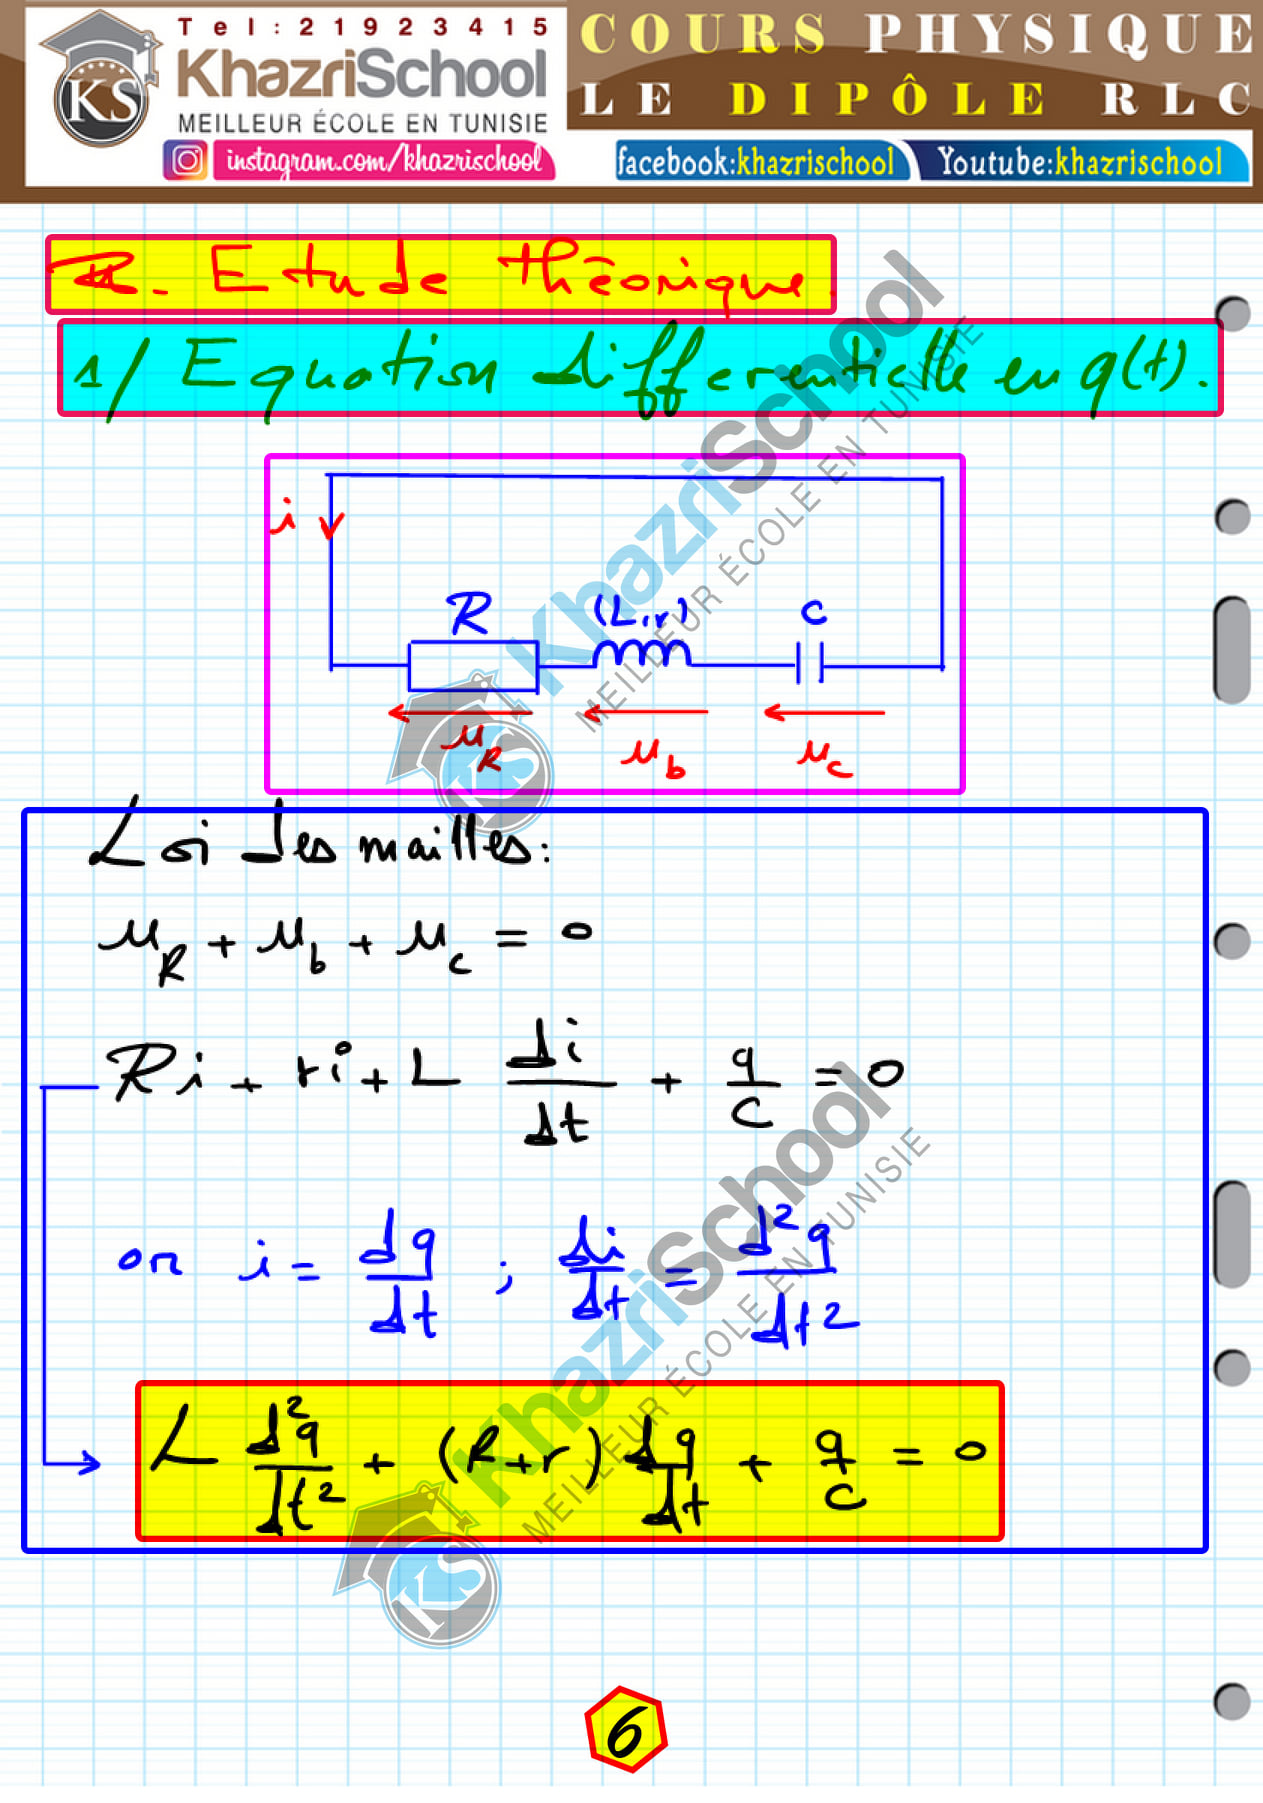 Tel:21923415
KhazriSchool
MEILLEUR ÉCOLE EN TUNISIE
instagram.com/khazrischool
COURS PHYSIQUE
LE DIPÔLE RLC
facebook:khazrischool
Youtube:khazrischool
KS
. Etude théorique.
1/ Equation differentielle en q(t).
i
R
(L,r)
C
u_R
u_b
u_c
Loi des mailles:
u_R + u_b + u_c = 0
Ri + ri + L di/dt + q/C = 0
or i = dq/dt ; di/dt = d²q/dt²
L d²q/dt² + (R+r) dq/dt + q/C = 0
KhazriSchool
MEILLEUR ÉCOLE EN TUNISIE
KS
KhazriSchool
MEILLEUR ÉCOLE EN TUNISIE
KS
6